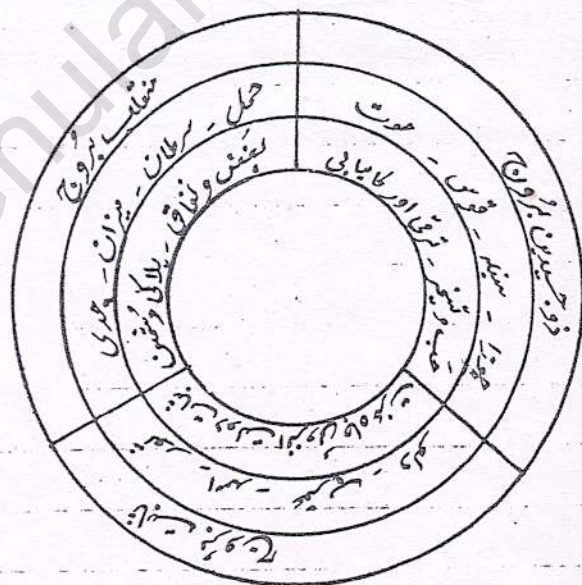 منقلب بُروج
حمل - سرطان - میزان - جدی
بغض و نفاق - ہلاکی دشمن
ذوجسدین بُروج
جوزا - سنبلہ - قوس - حوت
حب و تسخیر - ترقی اور کامیابی
ثابت بُروج
ثور - اسد - عقرب - دلو
enular